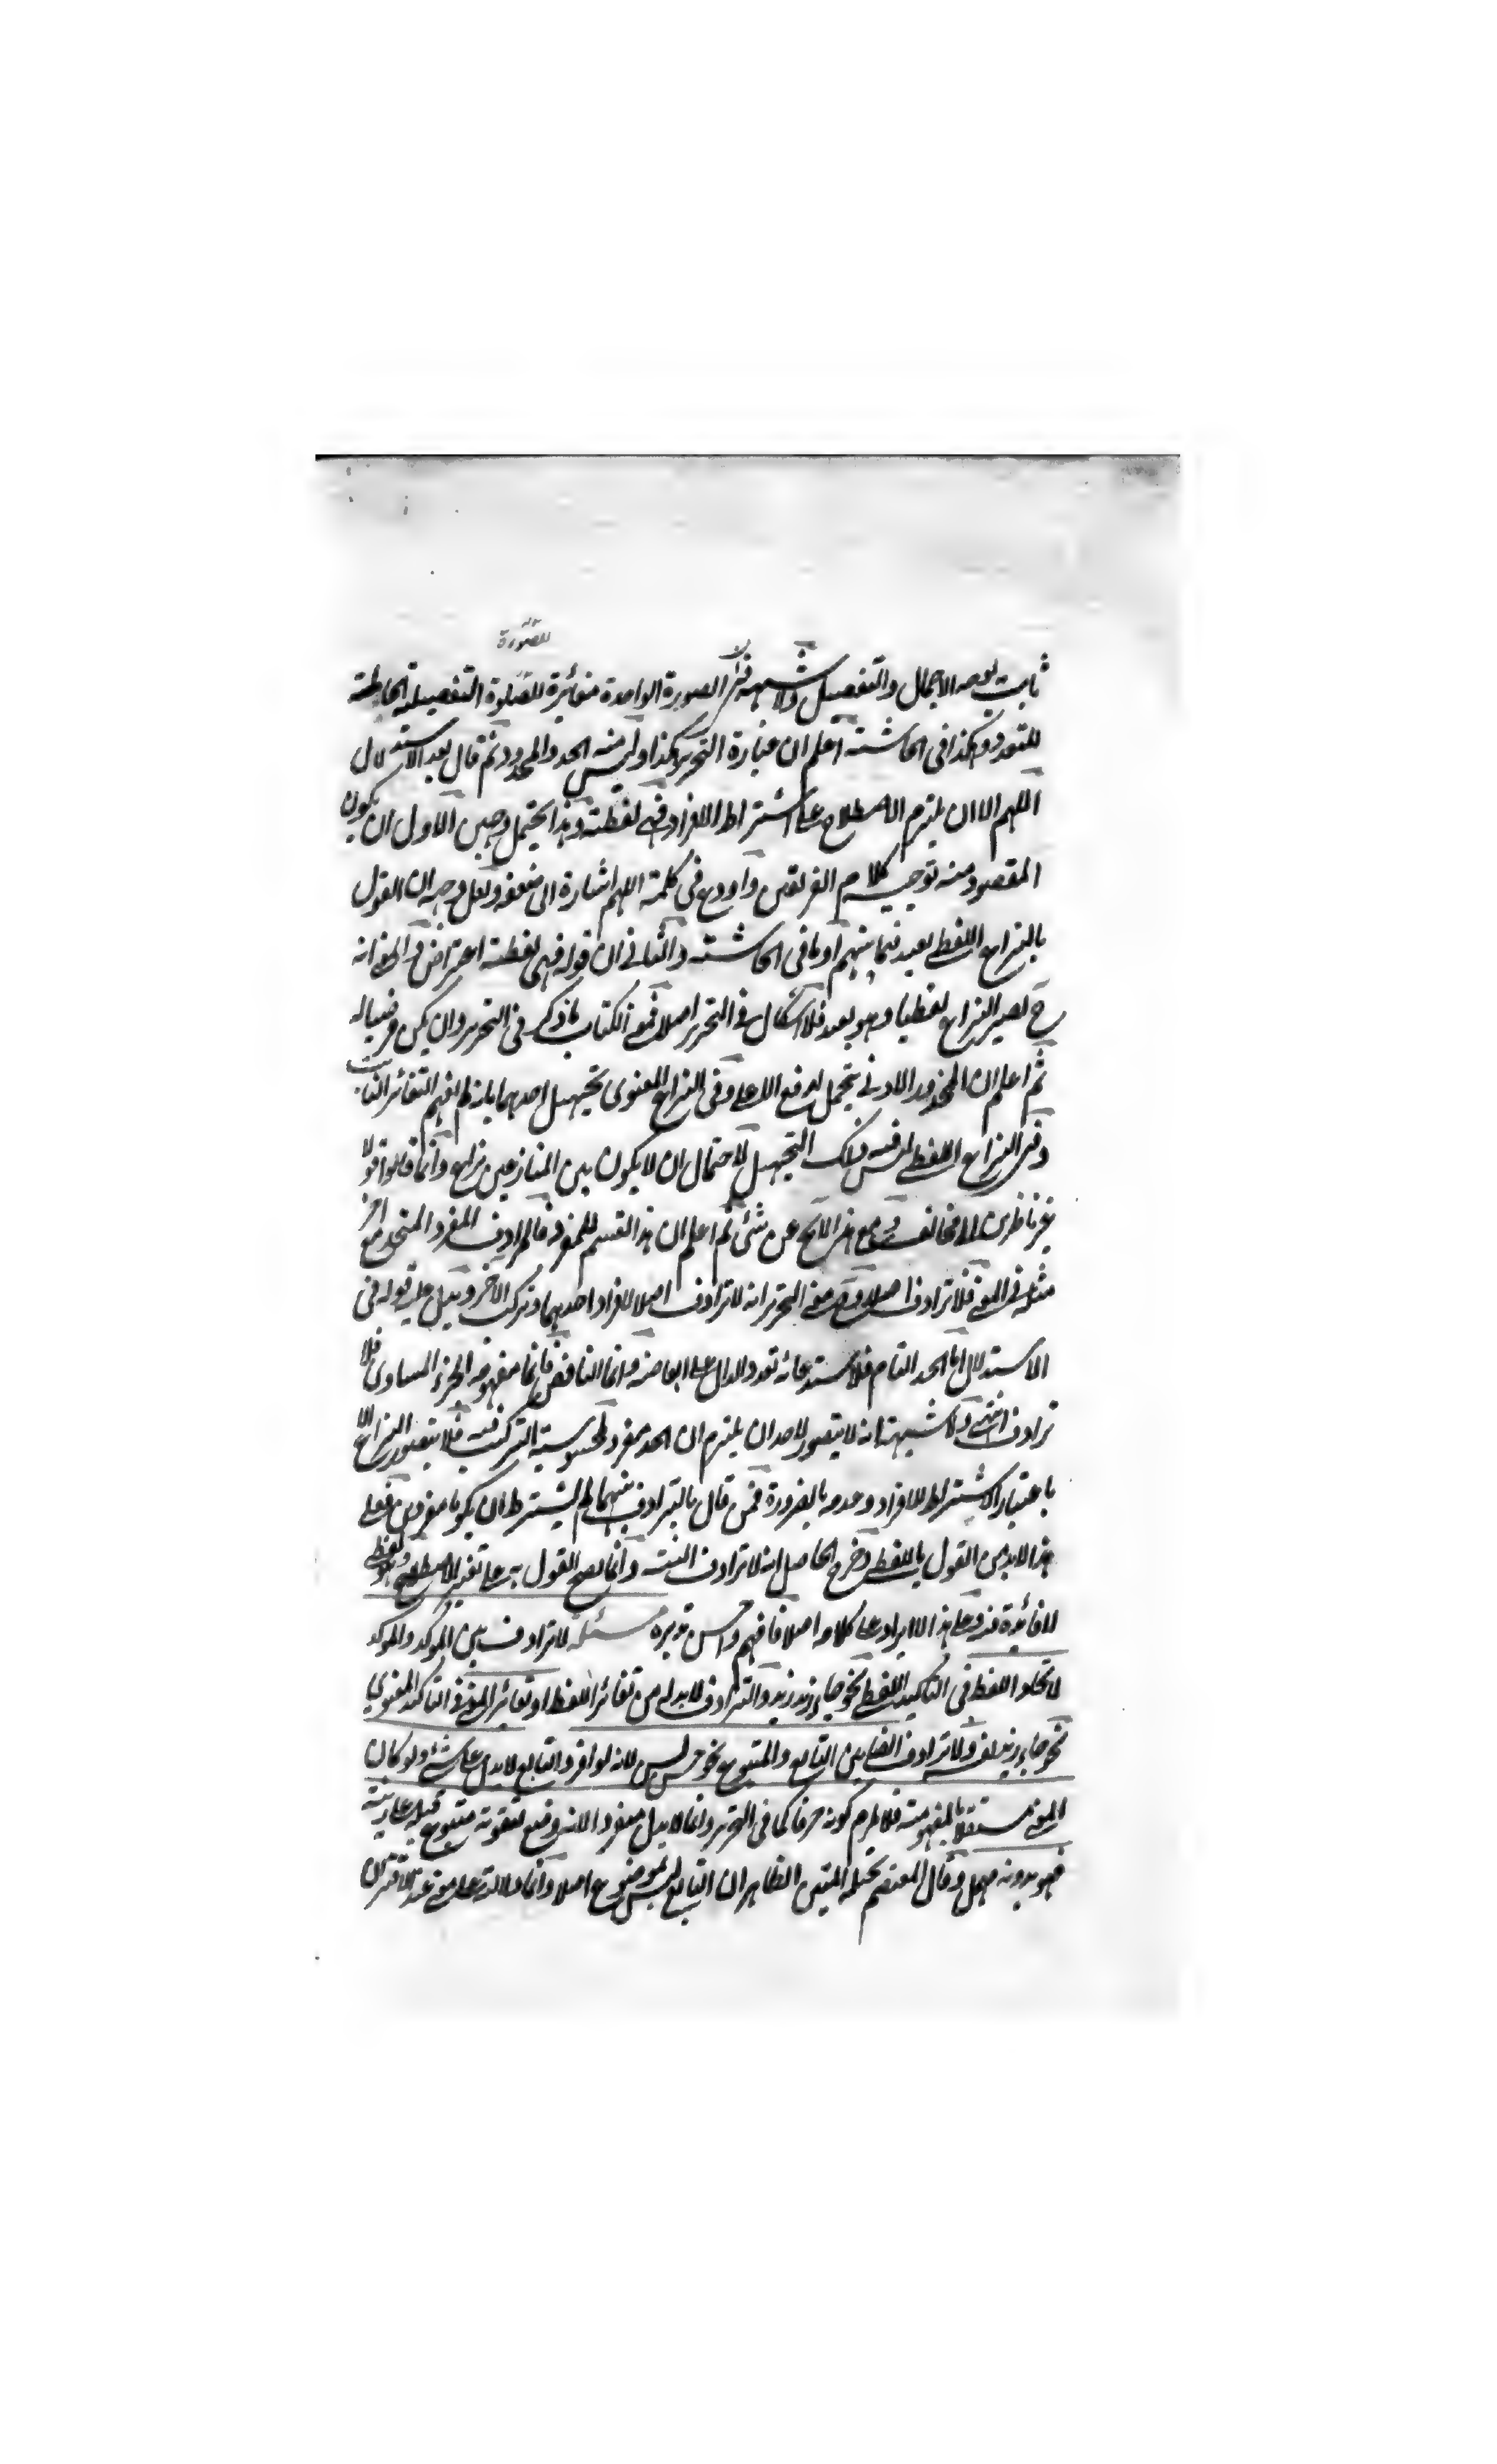 للصورة
ثابت بوجه الاجمال والتفصيل ولا شبهة في ان الصورة الواحدة مغائرة للصلوة التفصيلية
للتعدد وهكذا في الحاشية اعلم ان عبارة التحرير هكذا وليس منه الحد والمحدود ثم قال بعد الاستدلال
اللهم الا ان يلتزم الاصطلاح على اشتراط الافراد فهي لفظية وهذا يحتمل وجهين الاول ان يكون
المقصود منه توجيه كلام الفريقين واودع في كلمة اللهم اشارة الى ضعفه ولعل وجهه ان القول
بالنزاع اللفظي بعيد فيما بينهم او ما في الحاشية والثاني ان قوله فهي لفظية اعتراض والمعنى انه
ح يصير النزاع لفظيا وهو بعيد فلا اشكال في التحرير اصلا فمعنى الكتاب ما ذكر في التحرير وان لم يكن مرضيا له
ثم اعلم ان المحذور الادنى يتحمل لدفع الاعلى وفي النزاع المعنوي تجهيل احدهما بانه لم يفهم التغائر الثابت
وفي النزاع اللفظي ليس فيه ذلك التجهيل لاحتمال ان لا يكون بين المتنازعين نزاع وانما قالوا قولا
غير ناظرين الى مخالف ومع هذا لا يخ عن شئ ثم اعلم ان هذا القسم للمفرد فالمرادف المفرد المتحد مع اخر
مثله في المعنى فلا ترادف اصلا ومعنى التحرير انه لا ترادف اصلا لافراد احدهما وتركب الاخر ويدل عليه قوله في
الاستدلال اما الحد التام فلاستدعائه تعدد الدال على ابعاضه واما الناقص فانما مفهومه الجزء المساوي فلا
ترادف انتهى ولا شبهة انه لا يتصور لاحد ان يلتزم ان الحد مفرد لمحسوسية التركيب فيه فلا يتصور النزاع الا
باعتبار الاشتراط للافراد وعدمه بالضرورة فمن قال بالترادف بينهما لم يشترط ان يكونا مفردين فعلى
هذا لا بد من القول باللفظي وخرج الحاصل انه لا ترادف البتة وانما يصح القول به على تغيير الاصطلاح وهو لفظي
لا فائدة فيه وعلى هذا لا ايراد على كلامه اصلا فافهم واحسن تدبره مسئلة لا ترادف بين المؤكد والمؤكد
لاتحاد اللفظ في التاكيد اللفظي نحو جاء زيد زيد والترادف لا بد له من تغائر اللفظ او تغائر المعنى في التاكيد المعنوي
نحو جاء زيد نفسه ولا ترادف ايضا بين التابع والمتبوع نحو حسن بسن لانه لو افرد التابع لا يدل على شئ ولو كان
المعنى مستقلا بالمفهومية فلا يلزم كونه حرفا كما في التحرير وانما لا يدل مفردا لانه وضع لتقوية متبوع قبله
فهو بدونه مهمل وقال الظاهر ان التابع ليس بموضوع اصلا وانما دلالته على معنى عند الاقتران